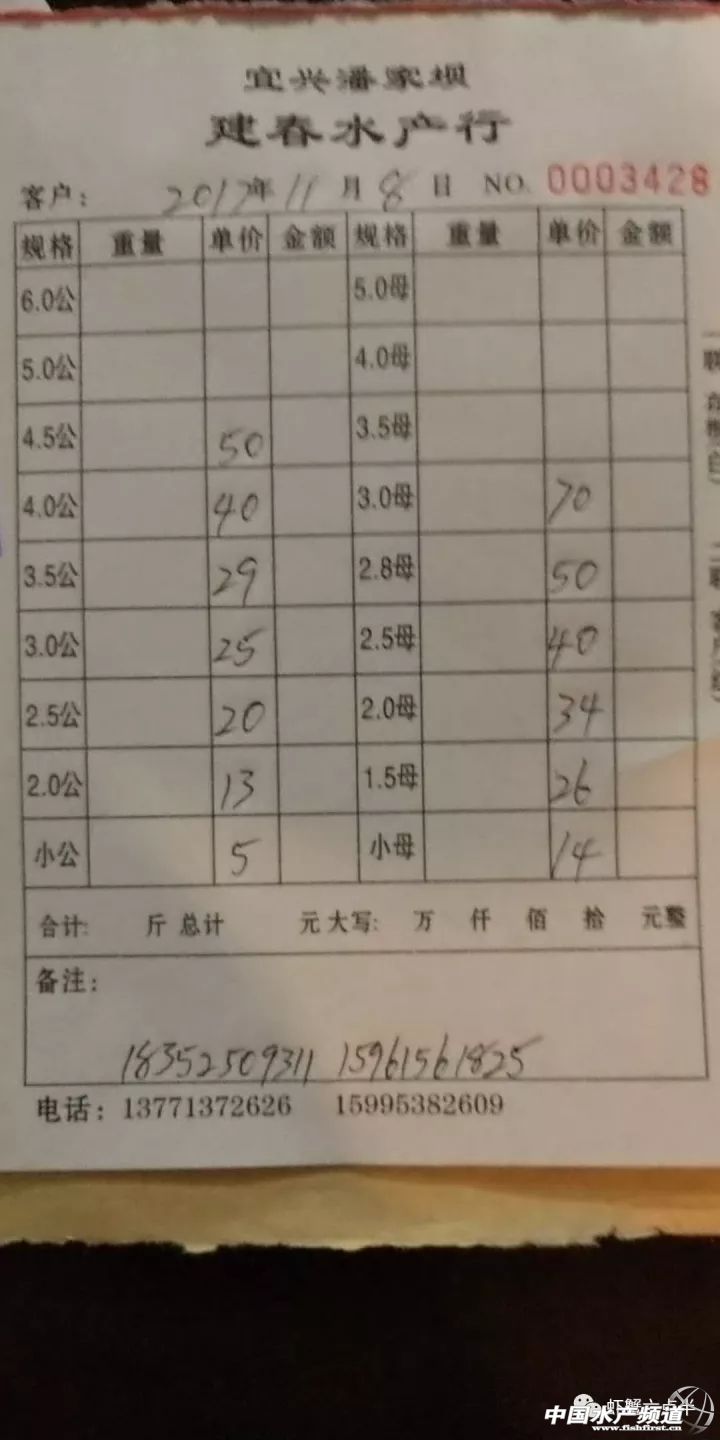 宜兴潘家坝
建春水产行
客户: 2017年11月8日 NO. 0003428
规格 重量 单价 金额 规格 重量 单价 金额
6.0公 5.0母
5.0公 4.0母
4.5公 50 3.5母
4.0公 40 3.0母 70
3.5公 29 2.8母 50
3.0公 25 2.5母 40
2.5公 20 2.0母 34
2.0公 13 1.5母 26
小公 5 小母 14
合计: 斤 总计 元 大写: 万 仟 佰 拾 元整
备注:
18352509311 15961561825
电话: 13771372626 15995382609
一联
二联
虾蟹六点半
中国水产频道
www.fishfirst.cn